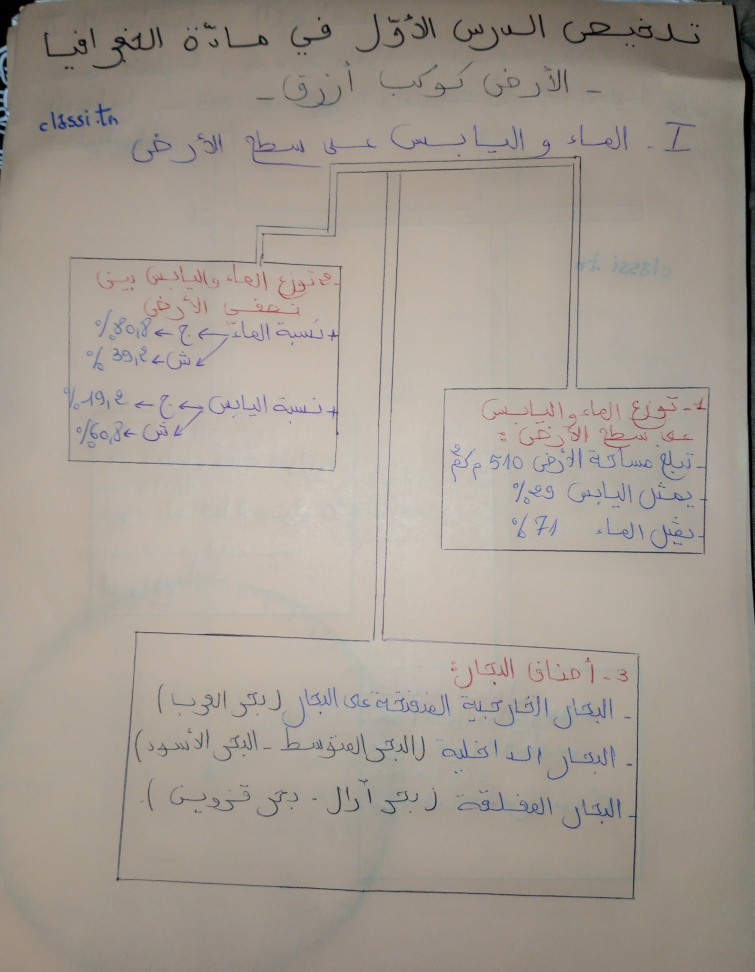 تلخيص الدرس الأوّل في مادّة الجغرافيا
- الأرض كوكب أزرق -
classi.tn
I - الماء و اليابس على سطح الأرض
1- توزع الماء و اليابس
على سطح الأرض :
- تبلغ مساحة الأرض 510 م كم²
- يمثل اليابس 29%
- يمثّل الماء 71%
2- توزع الماء واليابس بين
نصفي الأرض
+ نسبة الماء ← ج ← 80,8%
← ش ← 39,2%
+ نسبة اليابس ← ج ← 19,2%
← ش ← 60,8%
3- أصناف البحار:
- البحار الخارجية المنفتحة على البحار (بحر العرب)
- البحار الداخلية (البحر المتوسط - البحر الأسود)
- البحار المغلقة (بحر آرال - بحر قزوين).
classi.tn